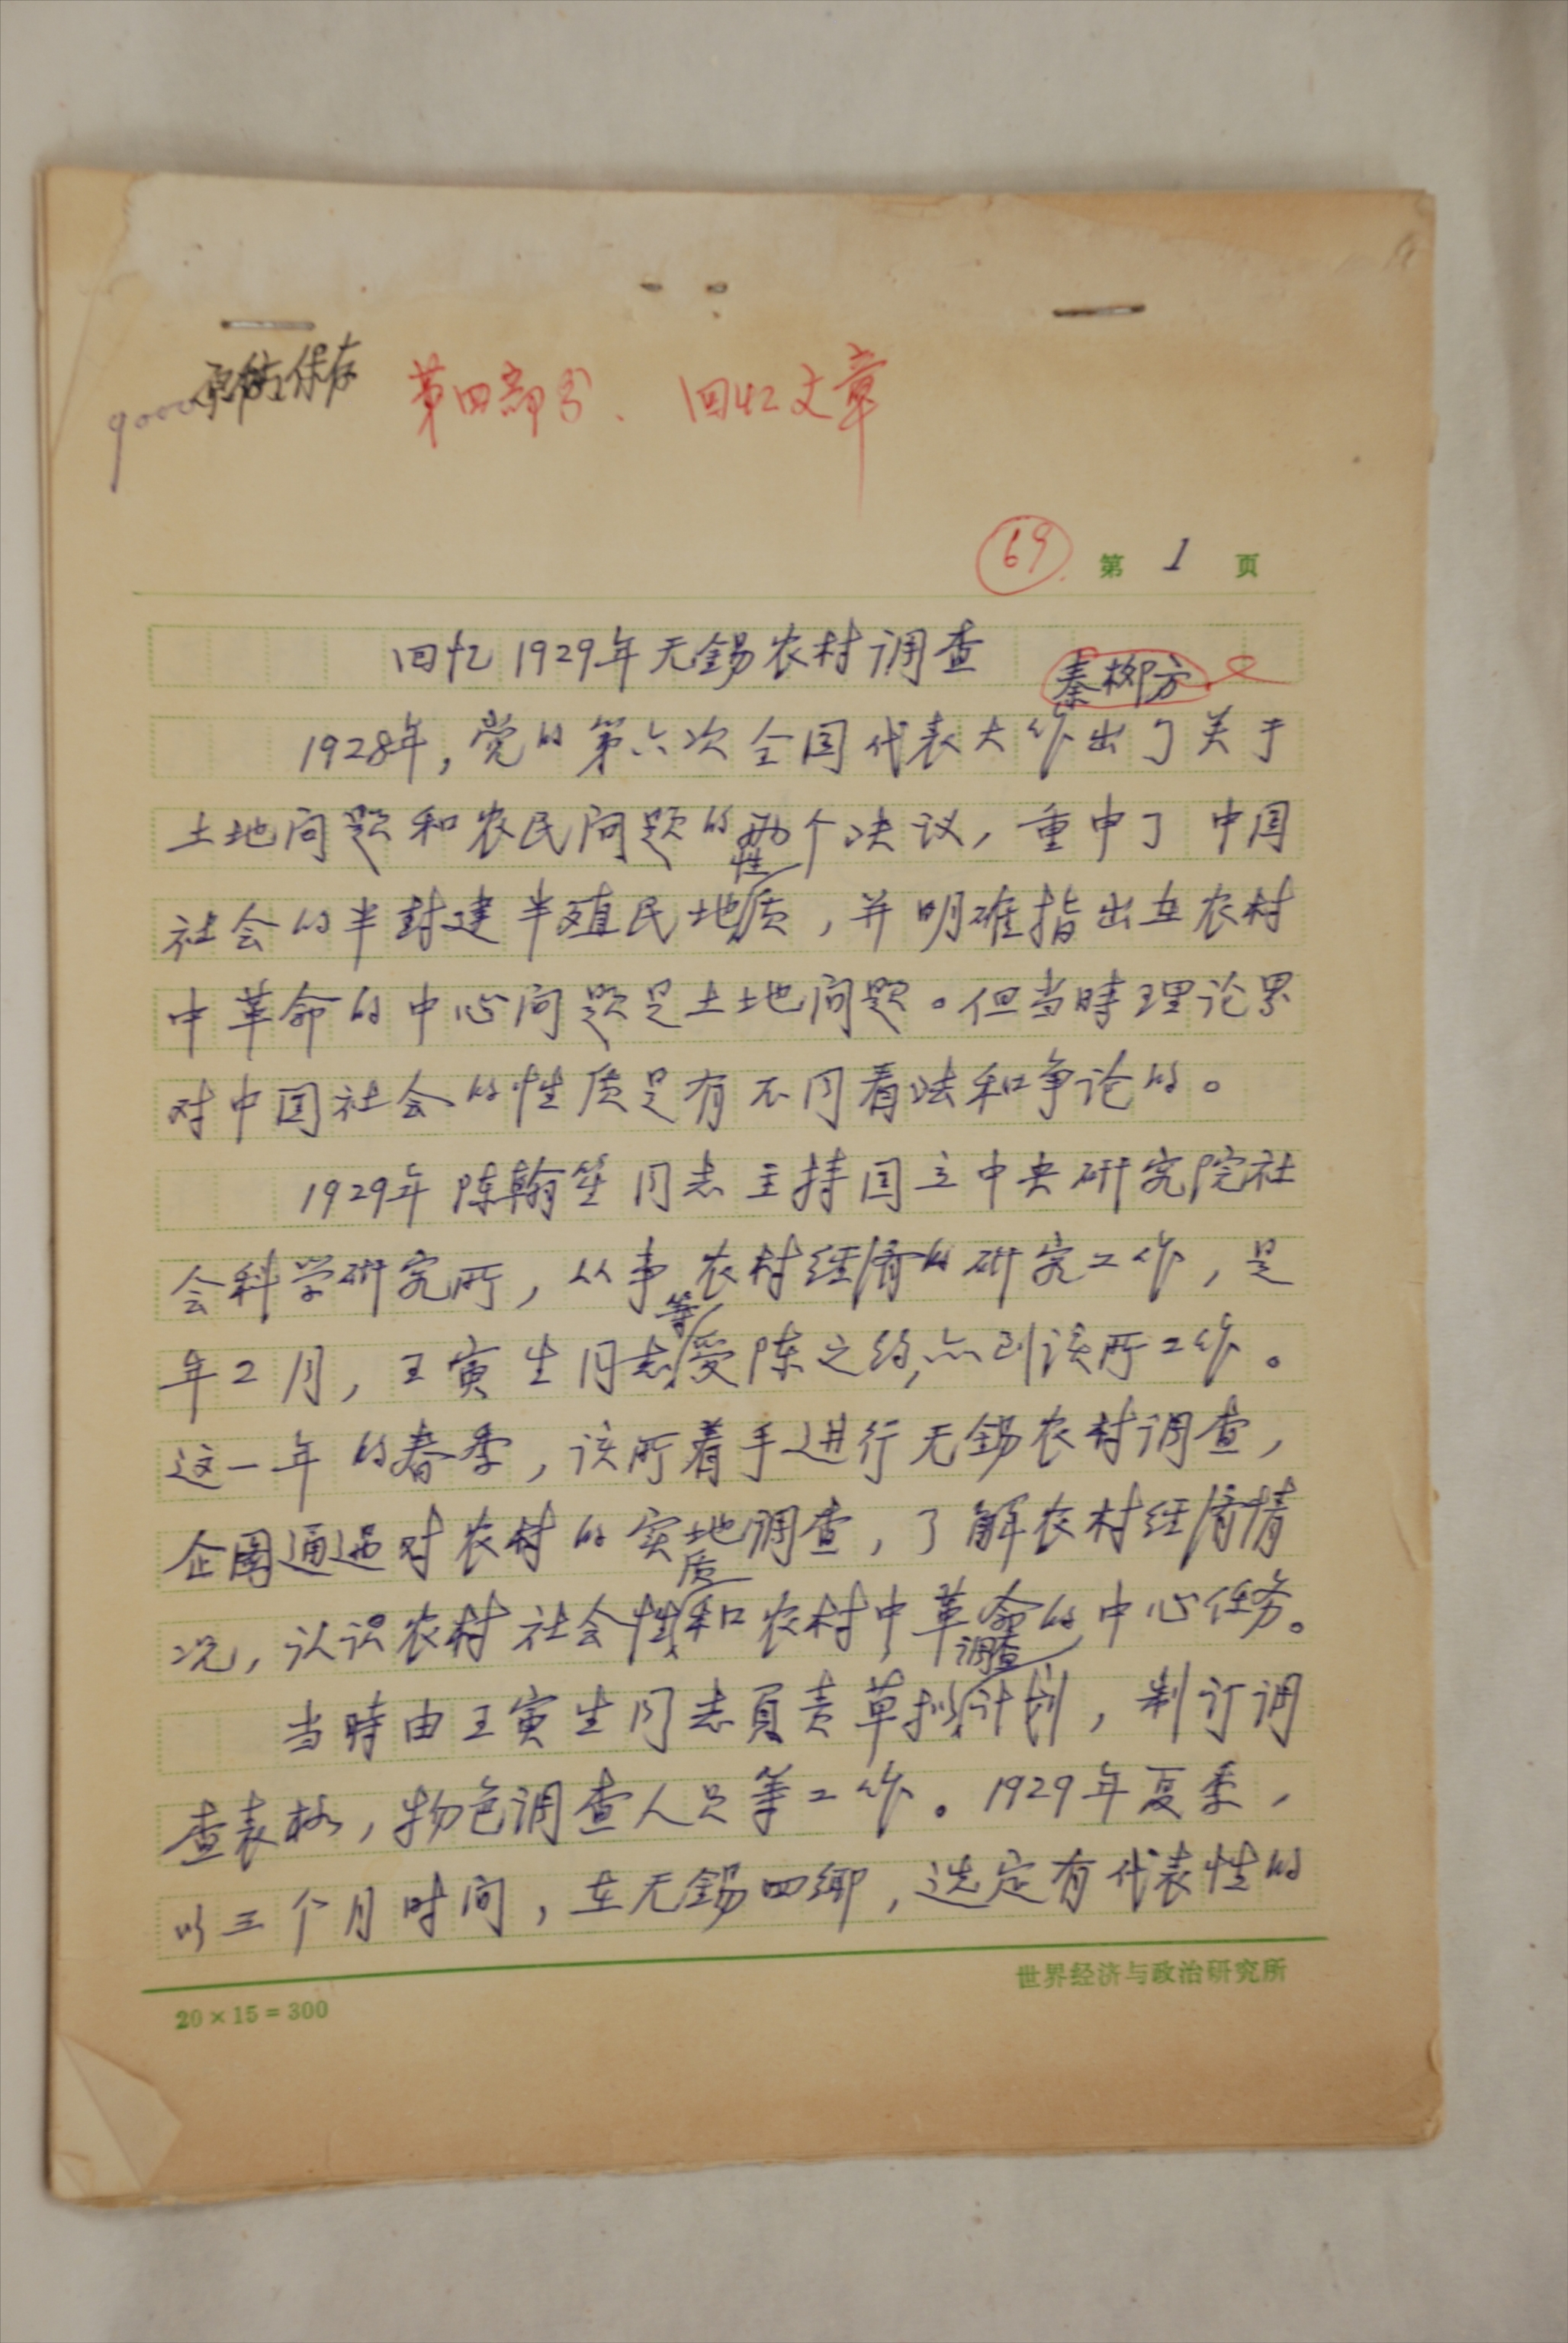 原稿保存
第四部分、回忆文章
69 第 1 页
回忆1929年无锡农村调查
秦柳方
1928年，党的第六次全国代表大作出了关于
土地问题和农民问题的两个决议，重申了中国
社会的半封建半殖民地性质，并明确指出在农村
中革命的中心问题是土地问题。但当時理论界
对中国社会的性质是有不同看法和争论的。
1929年陈翰笙同志主持国立中央研究院社
会科学研究所，从事农村经济的研究工作，是
年2月，王寅生同志等受陈之约，亦到该所工作。
这一年的春季，该所着手进行无锡农村调查，
企图通过对农村的实地调查，了解农村经济情
况，认识农村社会性质和农村中革命的中心任务。
当時由王寅生同志負责草拟调查计划，制订调
查表格，物色调查人员等工作。1929年夏季，
以三个月时间，在无锡四乡，选定有代表性的
20×15=300
世界经济与政治研究所